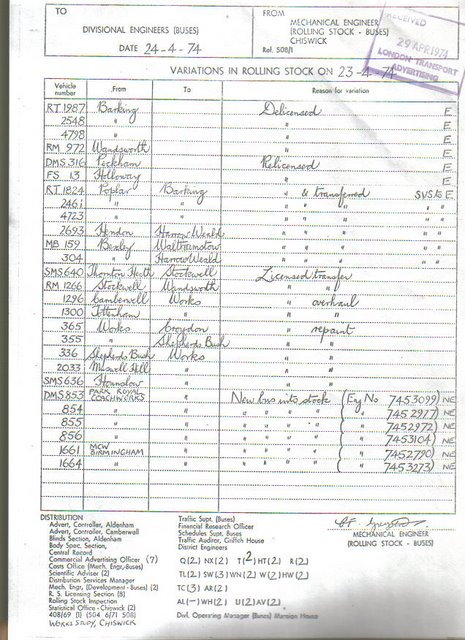 TO
DIVISIONAL ENGINEERS (BUSES)
DATE 24-4-74
FROM
MECHANICAL ENGINEER
(ROLLING STOCK - BUSES)
CHISWICK
Ref. 508/1
RECEIVED
29 APR 1974
LONDON TRANSPORT
ADVERTISING
VARIATIONS IN ROLLING STOCK ON 23-4-74
Vehicle number From To Reason for variation
RT 1987 Barking Delicensed E
2548 " " E
4798 " " E
RM 972 Wandsworth " E
DMS 316 Peckham Relicensed E
FS 13 Holloway " E
RT 1824 Poplar Barking " & transferred SVS to E
2461 " " " " " " "
4723 " " " " " " "
2693 Hendon Harrow Weald " " " " "
MB 159 Bexley Walthamstow " " " " "
304 " Harrow Weald " " " " "
SMS 640 Thornton Heath Stockwell Licensed transfer
RM 1266 Stockwell Wandsworth " "
1296 Camberwell Works " overhaul
1300 Tottenham " " "
365 Works Croydon " repaint
355 " Shepherds Bush " "
336 Shepherds Bush Works " "
2033 Muswell Hill " " "
SMS 636 Hounslow " " "
DMS 853 PARK ROYAL COACHWORKS New bus into stock (Eng No 7453099) NE
854 " " " " " ( " 7452977) NE
855 " " " " " ( " 7452972) NE
856 " " " " " ( " 7453104) NE
1661 MCW BIRMINGHAM " " " " ( " 7452790) NE
1664 " " " " " ( " 7453273) NE
DISTRIBUTION
Advert, Controller, Aldenham
Advert, Controller, Camberwell
Blinds Section, Aldenham
Body Spec. Section,
Central Record
Commercial Advertising Officer (7)
Costs Office (Mech. Engr.-Buses)
Scientific Adviser (2)
Distribution Services Manager
Mech. Engr, (Development - Buses) (2)
R. S. Licensing Section (8)
Rolling Stock Inspection
Statistical Office - Chiswick (2)
408/69 (1) (504 6/71 508)
WORKS STUDY, CHISWICK
Traffic Supt. (Buses)
Financial Research Officer
Schedules Supt. Buses
Traffic Auditor, Griffith House
District Engineers
Q(2) NX(2) T(2) HT(2) R(2)
TL(2) SW(3) WN(2) W(2) HW(2)
TC(3) AR(2)
AL(-) WH(2) U(2) AV(2)
Divl. Operating Manager (Buses) Mansion House
MECHANICAL ENGINEER
(ROLLING STOCK - BUSES)